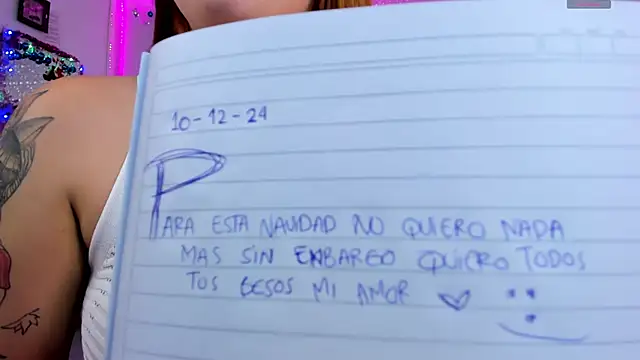 10-12-24
PARA ESTA NAVIDAD NO QUIERO NADA
MAS SIN EMBARGO QUIERO TODOS
TUS BESOS MI AMOR